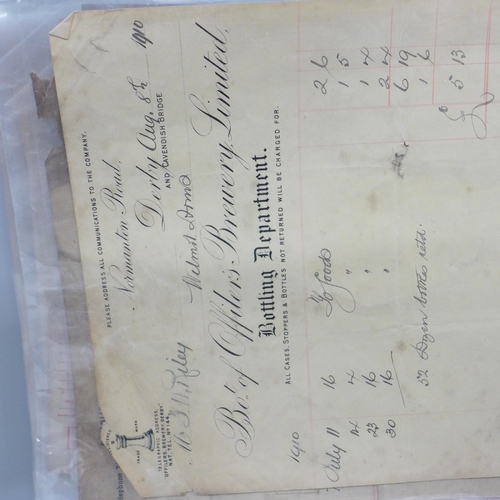 PLEASE ADDRESS ALL COMMUNICATIONS TO THE COMPANY.
TRADE MARK
TELEGRAPHIC ADDRESS
OFFILERS, BREWERY, DERBY.
NAT. TEL. Nº 144.
Normanton Road,
Derby Aug. 8th 1910
AND CAVENDISH BRIDGE
Mr Riley Wilmot Arms
Bot. of Offiler's Brewery, Limited.
Bottling Department.
ALL CASES, STOPPERS & BOTTLES NOT RETURNED WILL BE CHARGED FOR.
1910
July 11 16 To Goods 2 6
14 4 " 1 5
23 16 " 1 4
30 16 " 2 4
6 19
52 Dozen bottles retd. 1 6
£ 5 13